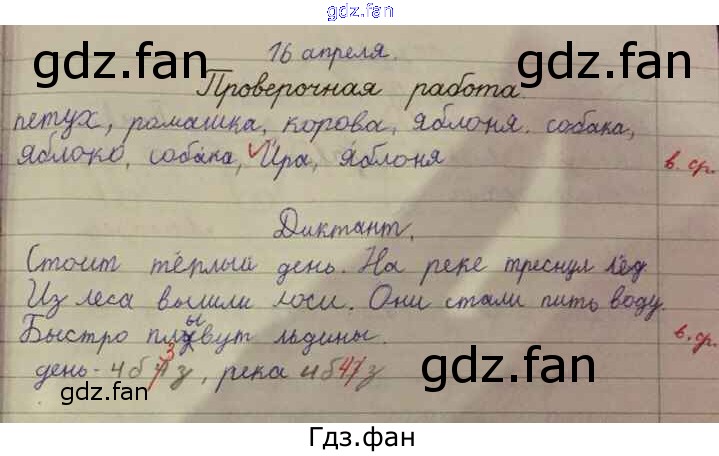 gdz.fan
gdz.fan gdz.fan
16 апреля.
Проверочная работа.
петух, ромашка, корова, яблоня. собака,
яблоко, собака, Ира, яблоня в. ср.
Диктант.
Стоит тёплый день. На реке треснул лёд
Из леса вышли лоси. Они стали пить воду.
Быстро плывут льдины. в. ср.
день - 4б 3з, река 4б 4з
gdz.fan gdz.fan
Гдз.фан